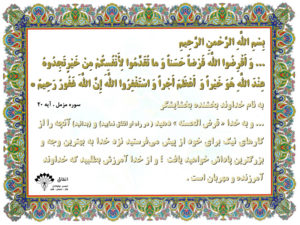 بِسْمِ اللَّهِ الرَّحْمنِ الرَّحِيمِ
... وَ أَقْرِضُوا اللَّهَ قَرْضاً حَسَناً وَ ما تُقَدِّمُوا لِأَنْفُسِكُمْ مِنْ خَيْرٍ تَجِدُوهُ
عِنْدَ اللَّهِ هُوَ خَيْراً وَ أَعْظَمَ أَجْراً وَ اسْتَغْفِرُوا اللَّهَ إِنَّ اللَّهَ غَفُورٌ رَحِيمٌ *
سوره مزمل . آیه ۲۰
به نام خداوند بخشنده بخشایشگر
... و به خدا « قرض الحسنه » دهید ( در راه او انفاق نمایید ) و (بدانید) آنچه را از
کارهای نیک برای خود از پیش می‌فرستید نزد خدا به بهترین وجه و
بزرگترین پاداش خواهید یافت ؛ و از خدا آمرزش بطلبید که خداوند
آمرزنده و مهربان است .
انفاق